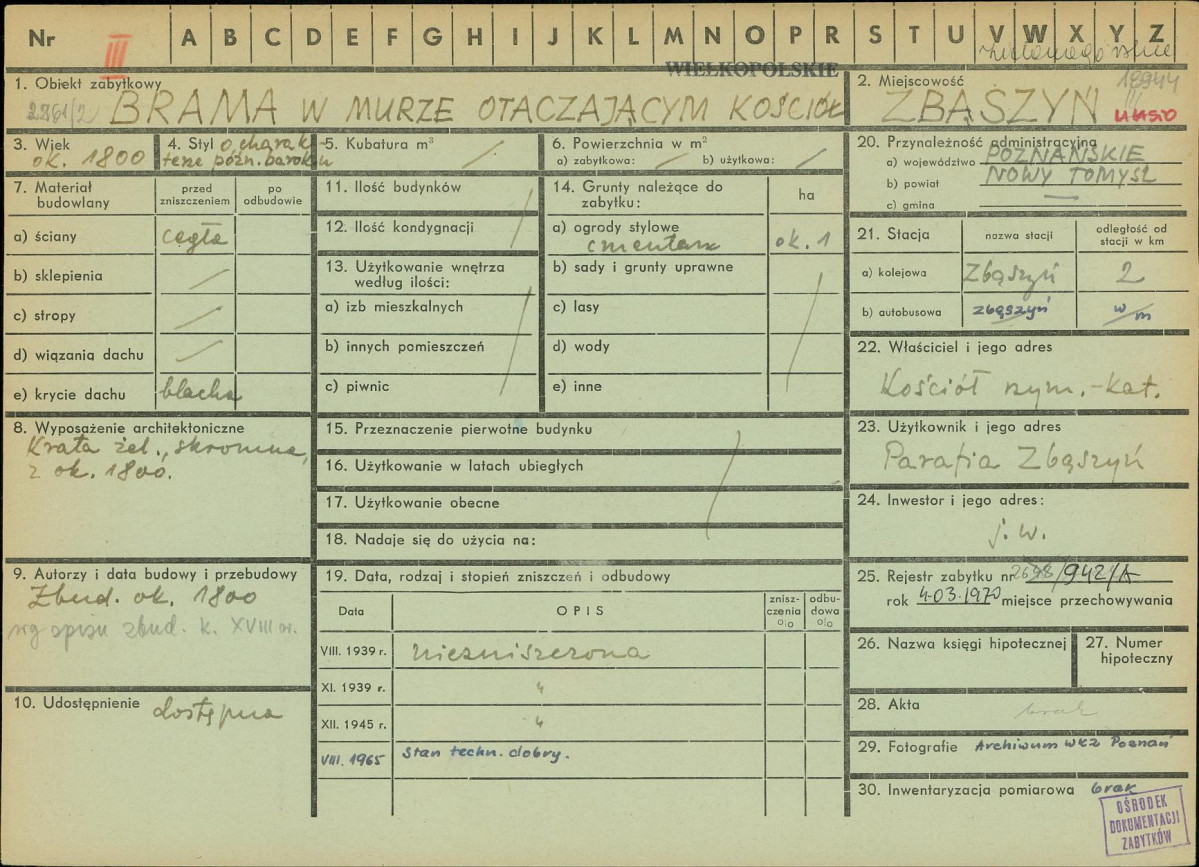 Nr III A B C D E F G H I J K L M N O P R S T U V W X Y Z
WIELKOPOLSKIE
1. Obiekt zabytkowy
2961/2 BRAMA W MURZE OTACZAJĄCYM KOŚCIÓŁ
2. Miejscowość 18944
ZBĄSZYŃ
3. Wiek
ok. 1800
4. Styl o charak
terze późn. baroku
5. Kubatura m³
6. Powierzchnia w m²
a) zabytkowa: b) użytkowa:
7. Materiał budowlany
przed zniszczeniem
po odbudowie
a) ściany cegła
b) sklepienia
c) stropy
d) wiązania dachu
e) krycie dachu blacha
8. Wyposażenie architektoniczne
Krata żel., skromna,
z ok. 1800.
9. Autorzy i data budowy i przebudowy
Zbud. ok. 1800
wg opisu zbud. k. XVIII w.
10. Udostępnienie dostępna
11. Ilość budynków
12. Ilość kondygnacji
13. Użytkowanie wnętrza
według ilości:
a) izb mieszkalnych
b) innych pomieszczeń
c) piwnic
14. Grunty należące do
zabytku:
ha
a) ogrody stylowe
cmentarz ok. 1
b) sady i grunty uprawne
c) lasy
d) wody
e) inne
15. Przeznaczenie pierwotne budynku
16. Użytkowanie w latach ubiegłych
17. Użytkowanie obecne
18. Nadaje się do użycia na:
19. Data, rodzaj i stopień zniszczeń i odbudowy
Data OPIS
znisz-
czenia
%
odbu-
dowa
%
VIII. 1939 r. niezniszczona
XI. 1939 r. "
XII. 1945 r. "
VIII. 1965 Stan techn. dobry.
20. Przynależność administracyjna
a) województwo POZNAŃSKIE
b) powiat NOWY TOMYŚL
c) gmina —
21. Stacja
nazwa stacji
odległość od
stacji w km
a) kolejowa Zbąszyń 2
b) autobusowa Zbąszyń w/m
22. Właściciel i jego adres
Kościół rzym.-kat.
23. Użytkownik i jego adres
Parafia Zbąszyń
24. Inwestor i jego adres:
j. w.
25. Rejestr zabytku nr /942/A
rok 4-03.1970 miejsce przechowywania
26. Nazwa księgi hipotecznej
27. Numer
hipoteczny
28. Akta brak
29. Fotografie Archiwum WKZ Poznań
30. Inwentaryzacja pomiarowa brak
OŚRODEK
DOKUMENTACJI
ZABYTKÓW